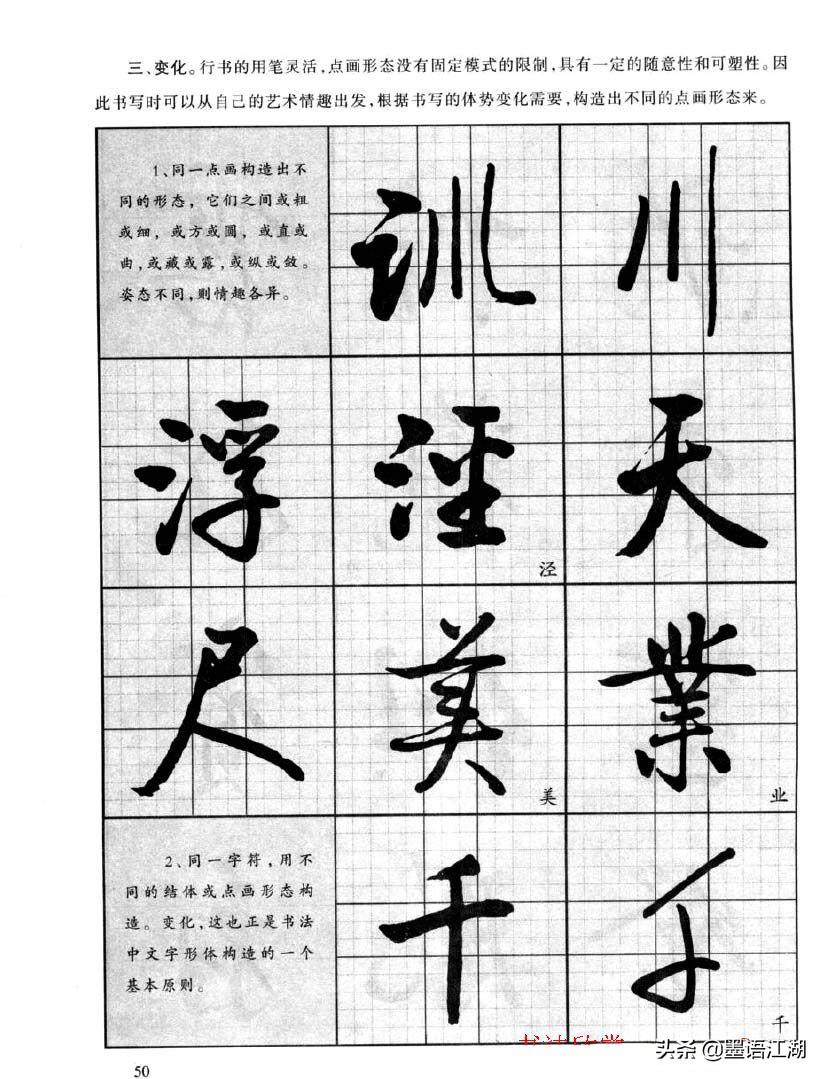 三、变化。行书的用笔灵活,点画形态没有固定模式的限制,具有一定的随意性和可塑性。因
此书写时可以从自己的艺术情趣出发,根据书写的体势变化需要,构造出不同的点画形态来。
1、同一点画构造出不
同的形态，它们之间或粗
或细，或方或圆，或直或
曲,或藏或露,或纵或敛。
姿态不同,则情趣各异。
訓 川
浮 淫 天
泾
尺 美 業
美 业
2、同一字符，用不
同的结体或点画形态构
造。变化,这也正是书法
中文字形体构造的一个
基本原则。
千 千
千
书法欣赏
头条 @墨语江湖
50